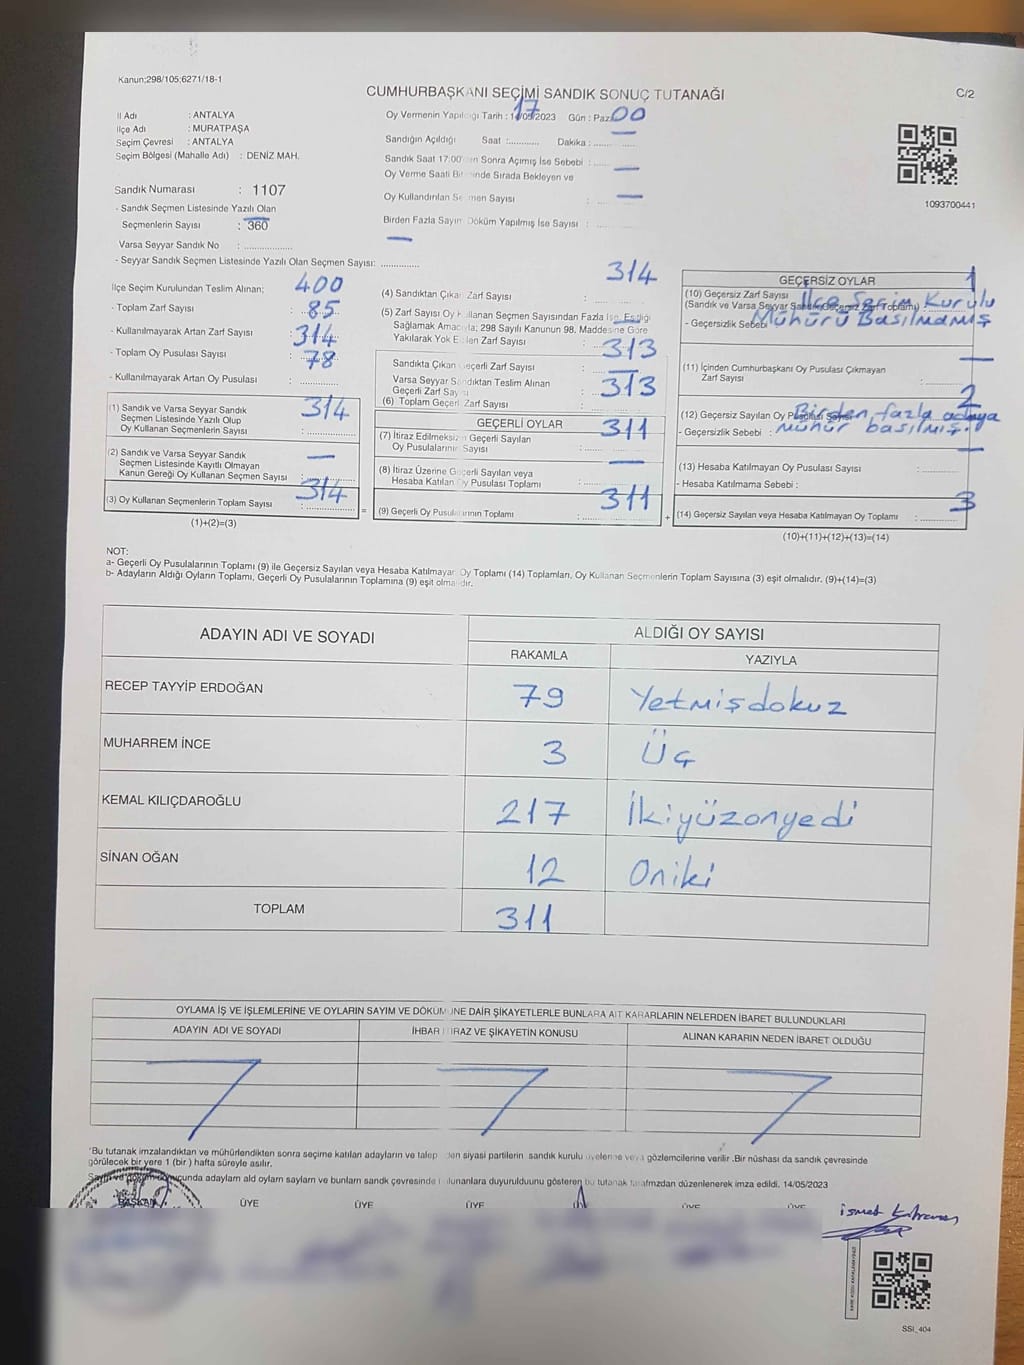 Kanun:298/105;6271/18-1
CUMHURBAŞKANI SEÇİMİ SANDIK SONUÇ TUTANAĞI
C/2
İl Adı : ANTALYA
İlçe Adı : MURATPAŞA
Seçim Çevresi : ANTALYA
Seçim Bölgesi (Mahalle Adı) : DENİZ MAH.
Sandık Numarası : 1107
- Sandık Seçmen Listesinde Yazılı Olan
Seçmenlerin Sayısı : 360
Varsa Seyyar Sandık No : ..................
- Seyyar Sandık Seçmen Listesinde Yazılı Olan Seçmen Sayısı: ..............
Oy Vermenin Yapıldığı Tarih : 14/05/2023 Gün : Pazar
17 00
Sandığın Açıldığı Saat :........... Dakika : ...........
Sandık Saat 17:00'den Sonra Açımış İse Sebebi : ......
Oy Verme Saati Bitiminde Sırada Bekleyen ve
—
Oy Kullandırılan Seçmen Sayısı : —
Birden Fazla Sayım Döküm Yapılmış İse Sayısı : ......
—
1093700441
İlçe Seçim Kurulundan Teslim Alınan; 400
- Toplam Zarf Sayısı : 85
- Kullanılmayarak Artan Zarf Sayısı : 314
- Toplam Oy Pusulası Sayısı : 78
- Kullanılmayarak Artan Oy Pusulası : ............
(1) Sandık ve Varsa Seyyar Sandık 314
Seçmen Listesinde Yazılı Olup
Oy Kullanan Seçmenlerin Sayısı
(2) Sandık ve Varsa Seyyar Sandık —
Seçmen Listesinde Kayıtlı Olmayan
Kanun Gereği Oy Kullanan Seçmen Sayısı
(3) Oy Kullanan Seçmenlerin Toplam Sayısı : 314
(1)+(2)=(3)
314
(4) Sandıktan Çıkan Zarf Sayısı : ............
(5) Zarf Sayısı Oy Kullanan Seçmen Sayısından Fazla İse, Eşitliği
Sağlamak Amacıyla; 298 Sayılı Kanunun 98. Maddesine Göre
Yakılarak Yok Edilen Zarf Sayısı
313
Sandıkta Çıkan Geçerli Zarf Sayısı : —
Varsa Seyyar Sandıktan Teslim Alınan
Geçerli Zarf Sayısı 313
(6) Toplam Geçerli Zarf Sayısı : ............
GEÇERLİ OYLAR
311
(7) İtiraz Edilmeksizin Geçerli Sayılan
Oy Pusulalarının Sayısı
—
(8) İtiraz Üzerine Geçerli Sayılan veya
Hesaba Katılan Oy Pusulası Toplamı
311
(9) Geçerli Oy Pusulalarının Toplamı : ............
GEÇERSİZ OYLAR
1
(10) Geçersiz Zarf Sayısı
(Sandık ve Varsa Seyyar Sandık Geçersiz Zarf Toplamı) : ............
- Geçersizlik Sebebi :
İlçe Seçim Kurulu
Mühürü Basılmamış
—
(11) İçinden Cumhurbaşkanı Oy Pusulası Çıkmayan
Zarf Sayısı : ............
2
(12) Geçersiz Sayılan Oy Pusulası Sayısı
- Geçersizlik Sebebi :
Birden fazla adaya
mühür basılmış.
—
(13) Hesaba Katılmayan Oy Pusulası Sayısı : ............
- Hesaba Katılmama Sebebi :
3
(14) Geçersiz Sayılan veya Hesaba Katılmayan Oy Toplamı : ............
(10)+(11)+(12)+(13)=(14)
NOT:
a- Geçerli Oy Pusulalarının Toplamı (9) ile Geçersiz Sayılan veya Hesaba Katılmayan Oy Toplamı (14) Toplamları, Oy Kullanan Seçmenlerin Toplam Sayısına (3) eşit olmalıdır. (9)+(14)=(3)
b- Adayların Aldığı Oyların Toplamı, Geçerli Oy Pusulalarının Toplamına (9) eşit olmalıdır.
ADAYIN ADI VE SOYADI
ALDIĞI OY SAYISI
RAKAMLA YAZIYLA
RECEP TAYYİP ERDOĞAN 79 Yetmişdokuz
MUHARREM İNCE 3 Üç
KEMAL KILIÇDAROĞLU 217 İkiyüzonyedi
SİNAN OĞAN 12 Oniki
TOPLAM 311
OYLAMA İŞ VE İŞLEMLERİNE VE OYLARIN SAYIM VE DÖKÜMÜNE DAİR ŞİKAYETLERLE BUNLARA AİT KARARLARIN NELERDEN İBARET BULUNDUKLARI
ADAYIN ADI VE SOYADI İHBAR İTİRAZ VE ŞİKAYETİN KONUSU ALINAN KARARIN NEDEN İBARET OLDUĞU
*Bu tutanak imzalandıktan ve mühürlendikten sonra seçime katılan adayların ve talep eden siyasi partilerin sandık kurulu üyelerine veya gözlemcilerine verilir .Bir nüshası da sandık çevresinde
görülecek bir yere 1 (bir ) hafta süreyle asılır.
Sayım ve döküm sonucunda adayların aldı oyların sayların ve bunların sandk çevresinde bulunanlara duyurulduunu gösteren bu tutanak tarafmzdan düzenlenerek imza edildi. 14/05/2023
BAŞKAN ÜYE ÜYE ÜYE ÜYE ÜYE
ismet
SSI_404